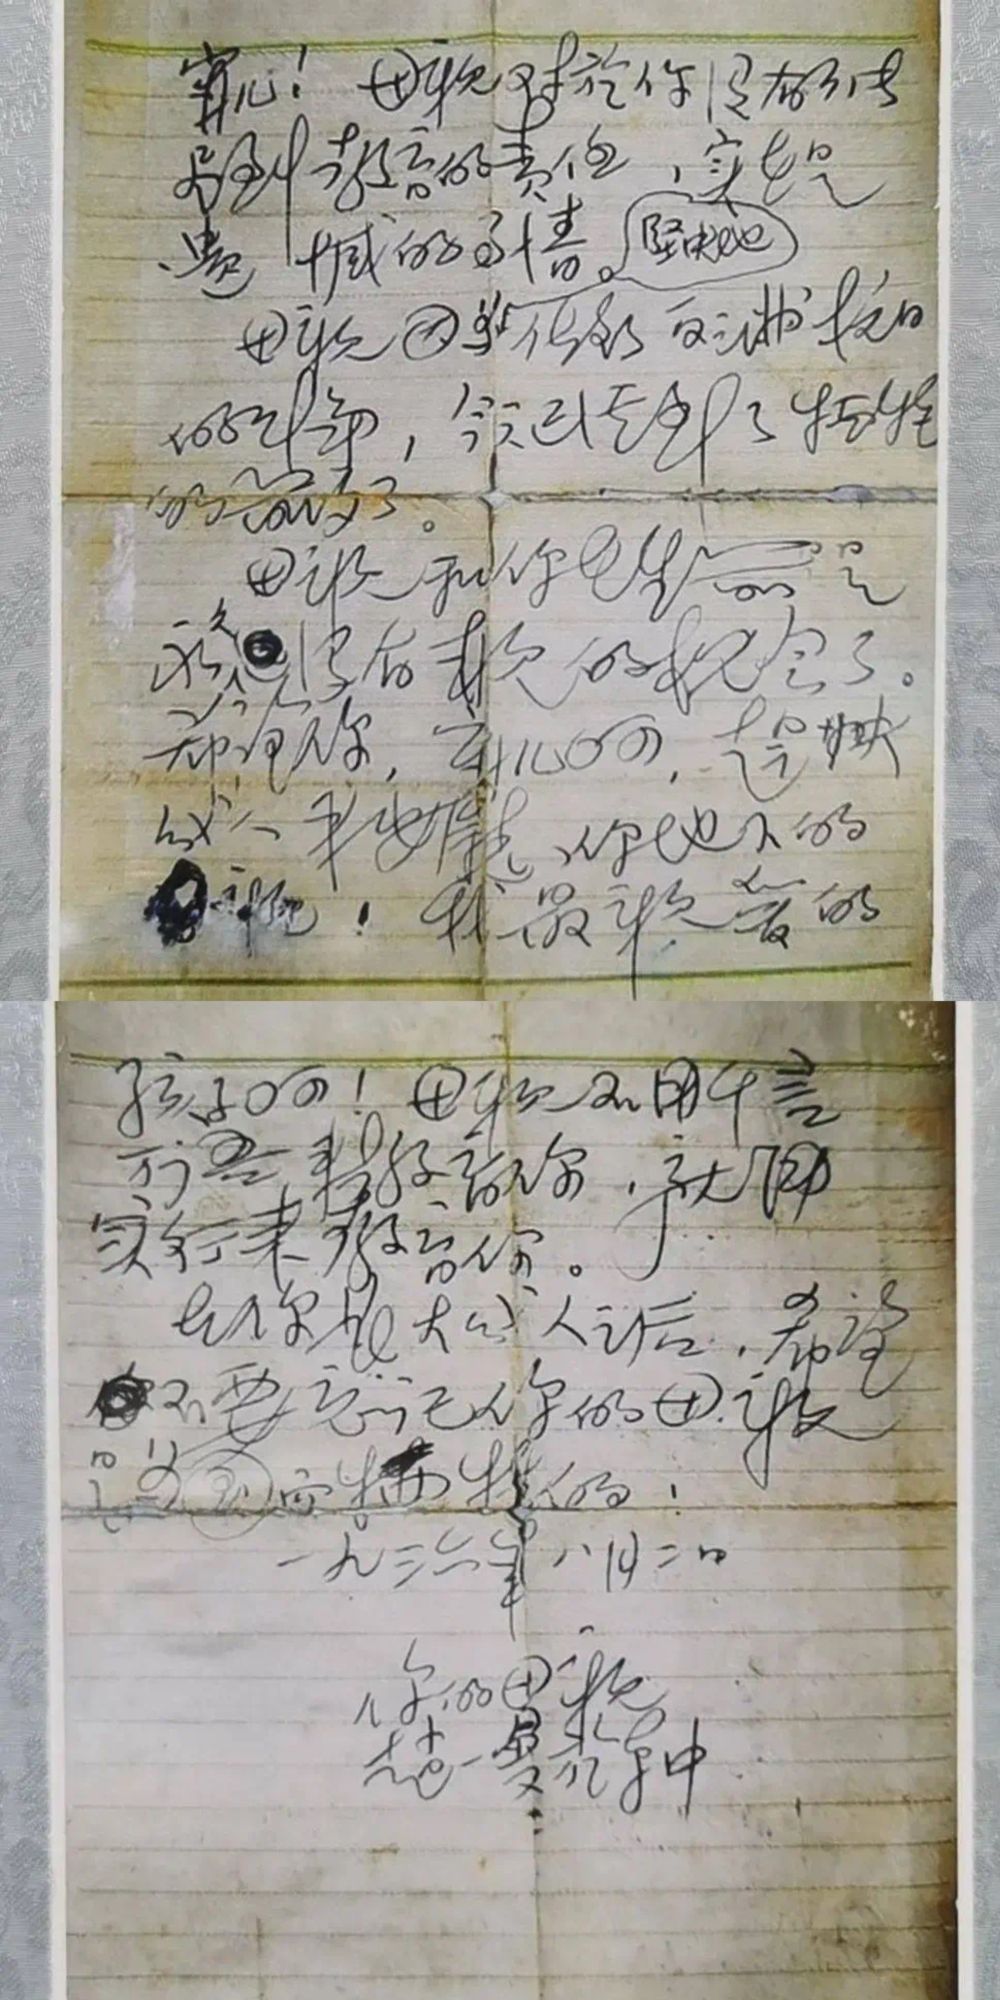 宁儿！母亲对于你没有能
尽到教育的责任，实在是
遗憾的事情。
母亲因为坚决地做了反满抗日
的斗争，今天已经到了牺牲
的前夕了。
母亲和你在生前是
永久没有再见的机会了。
希望你，宁儿啊，赶快
成人来安慰你地下的
母亲！我最亲爱的
孩子啊！母亲不用千言
万语来教育你，就用
实行来教育你。
在你长大成人之后，希望
不要忘记你的母亲
是为国而牺牲的！
一九三六年八月二日
你的母亲
赵一曼于车中